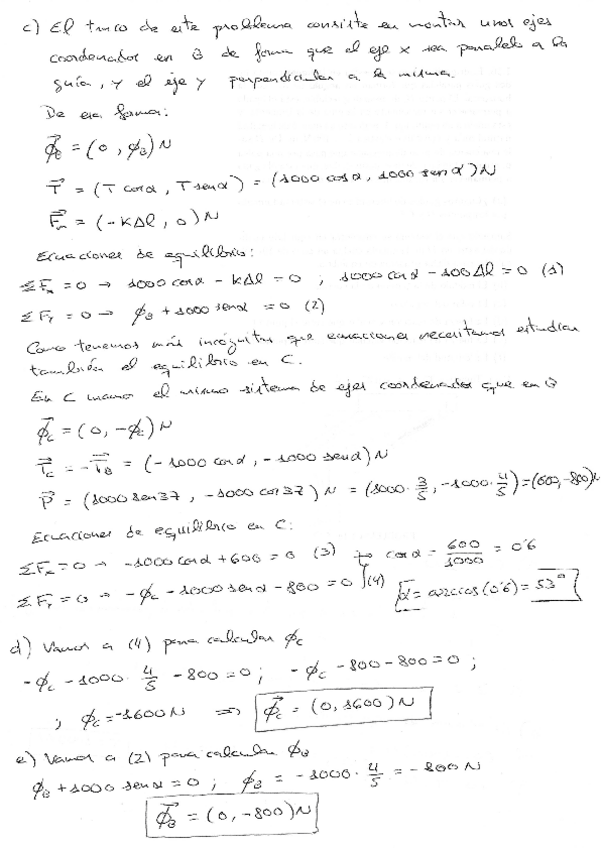 c) El truco de este problema consiste en montar unos ejes
coordenados en B de forma que el eje x sea paralelo a la
guía, y el eje y perpendicular a la misma.
De esa forma:
ϕ⃗_B = (0, ϕ_B) N
T⃗ = (T cosα, T senα) = (1000 cosα, 1000 senα) N
F⃗_m = (-KΔl, 0) N
Ecuaciones de equilibrio:
ΣF_x = 0 → 1000 cosα - KΔl = 0 ; 1000 cosα - 100Δl = 0 (1)
ΣF_y = 0 → ϕ_B + 1000 senα = 0 (2)
Como tenemos más incógnitas que ecuaciones necesitamos estudiar
también el equilibrio en C.
En C usamos el mismo sistema de ejes coordenados que en B
ϕ⃗_C = (0, -ϕ_C) N
T⃗_C = -T⃗_B = (-1000 cosα, -1000 senα) N
P⃗ = (1000 sen37, -1000 cos37) N = (1000·3/5, -1000·4/5) = (600, -800) N
Ecuaciones de equilibrio en C:
ΣF_x = 0 → -1000 cosα + 600 = 0 (3) → cosα = 600/1000 = 0'6
ΣF_y = 0 → -ϕ_C - 1000 senα - 800 = 0 (4) α = arccos(0'6) = 53°
d) Vamos a (4) para calcular ϕ_C
-ϕ_C - 1000·4/5 - 800 = 0 ; -ϕ_C - 800 - 800 = 0 ;
; ϕ_C = -1600 N ⇒ ϕ⃗_C = (0, 1600) N
e) Vamos a (2) para calcular ϕ_B
ϕ_B + 1000 senα = 0 ; ϕ_B = -1000·4/5 = -800 N
ϕ⃗_B = (0, -800) N